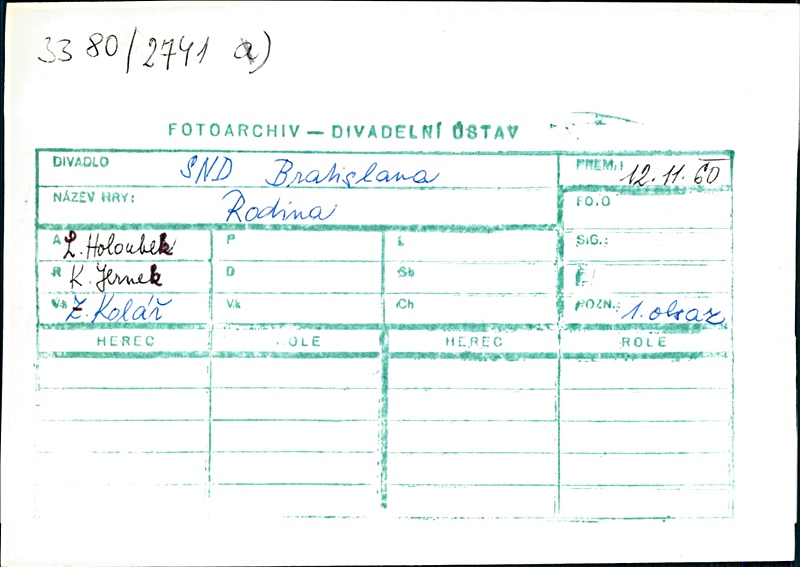 3380/2741 a)
FOTOARCHIV — DIVADELNÍ ÚSTAV
DIVADLO SND Bratislava PREM.: 12.11.60
NÁZEV HRY: Rodina FOTO
A L. Holoubek P L SIG.:
R K. Jernek D Sb
Vs Z. Kolář Vk Ch POZN.: 1. obsaz
HEREC ROLE HEREC ROLE